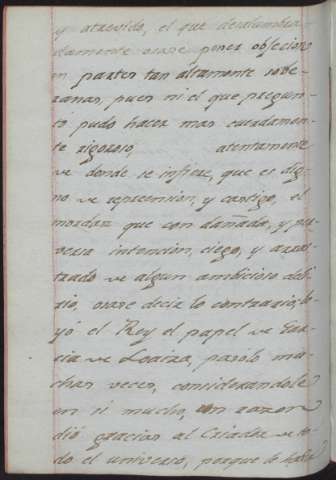 y atrevido, el que deslumbra-
damente osase poner obsecion
en partes tan altamente sobe-
ranas, pues ni el que pregun-
tó pudo hacer mas cuerdamen-
te rigoroso, atentamente
de donde se infiere, que es dig-
no de reprension, y castigo, el
mordaz que con dañada, y per-
versa intencion, ciego, y arras-
trado de algun ambicioso deli-
rio, osase decir lo contrario; le-
yó el Rey el papel de Gar-
cia de Loaiza, pasólo mu-
chas veces, considerandole
en si mucho, con razon
dió gracias al Criador de to-
do el universo, porque le había